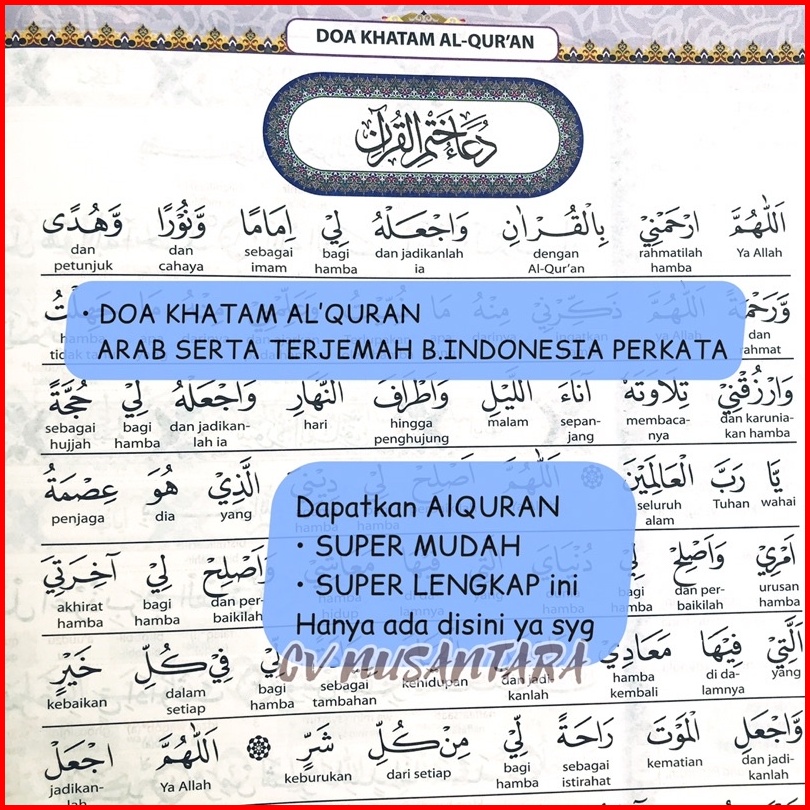 DOA KHATAM AL-QUR'AN
دُعَاءُ خَتْمِ الْقُرْآنِ
اَللّٰهُمَّ ارْحَمْنِيْ بِالْقُرْاٰنِ وَاجْعَلْهُ لِيْ اِمَامًا وَّنُوْرًا وَّهُدًى
Ya Allah rahmatilah hamba dengan Al-Qur'an dan jadikanlah ia bagi hamba sebagai imam dan cahaya dan petunjuk
وَّرَحْمَةً
dan rahmat
• DOA KHATAM AL'QURAN
ARAB SERTA TERJEMAH B.INDONESIA PERKATA
وَارْزُقْنِيْ تِلَاوَتَهٗ اٰنَآءَ اللَّيْلِ وَاَطْرَافَ النَّهَارِ وَاجْعَلْهُ لِيْ حُجَّةً
dan karunia-kan hamba membaca-nya sepan-jang malam hingga penghujung hari dan jadikan-lah ia bagi hamba sebagai hujjah
يَّا رَبَّ الْعَالَمِيْنَ
wahai Tuhan seluruh alam
الَّذِيْ هُوَ عِصْمَةُ
yang dia penjaga
Dapatkan AlQURAN
• SUPER MUDAH
• SUPER LENGKAP ini
Hanya ada disini ya syg
CV NUSANTARA
اَمْرِيْ وَاَصْلِحْ لِيْ
urusan hamba dan per-baikilah bagi hamba
وَاَصْلِحْ لِيْ اٰخِرَتِيَ
dan per-baikilah bagi hamba akhirat hamba
الَّتِيْ فِيْهَا مَعَادِيْ
yang di da-lamnya hamba kembali dan jadi-kanlah kehidupan sebagai tambahan bagi hamba
فِيْ كُلِّ خَيْرٍ
dalam setiap kebaikan
وَّاجْعَلِ الْمَوْتَ رَاحَةً لِّيْ مِنْ كُلِّ شَرٍّ اَللّٰهُمَّ اجْعَلْ
dan jadi-kanlah kematian sebagai istirahat bagi hamba dari setiap keburukan Ya Allah jadikan-lah